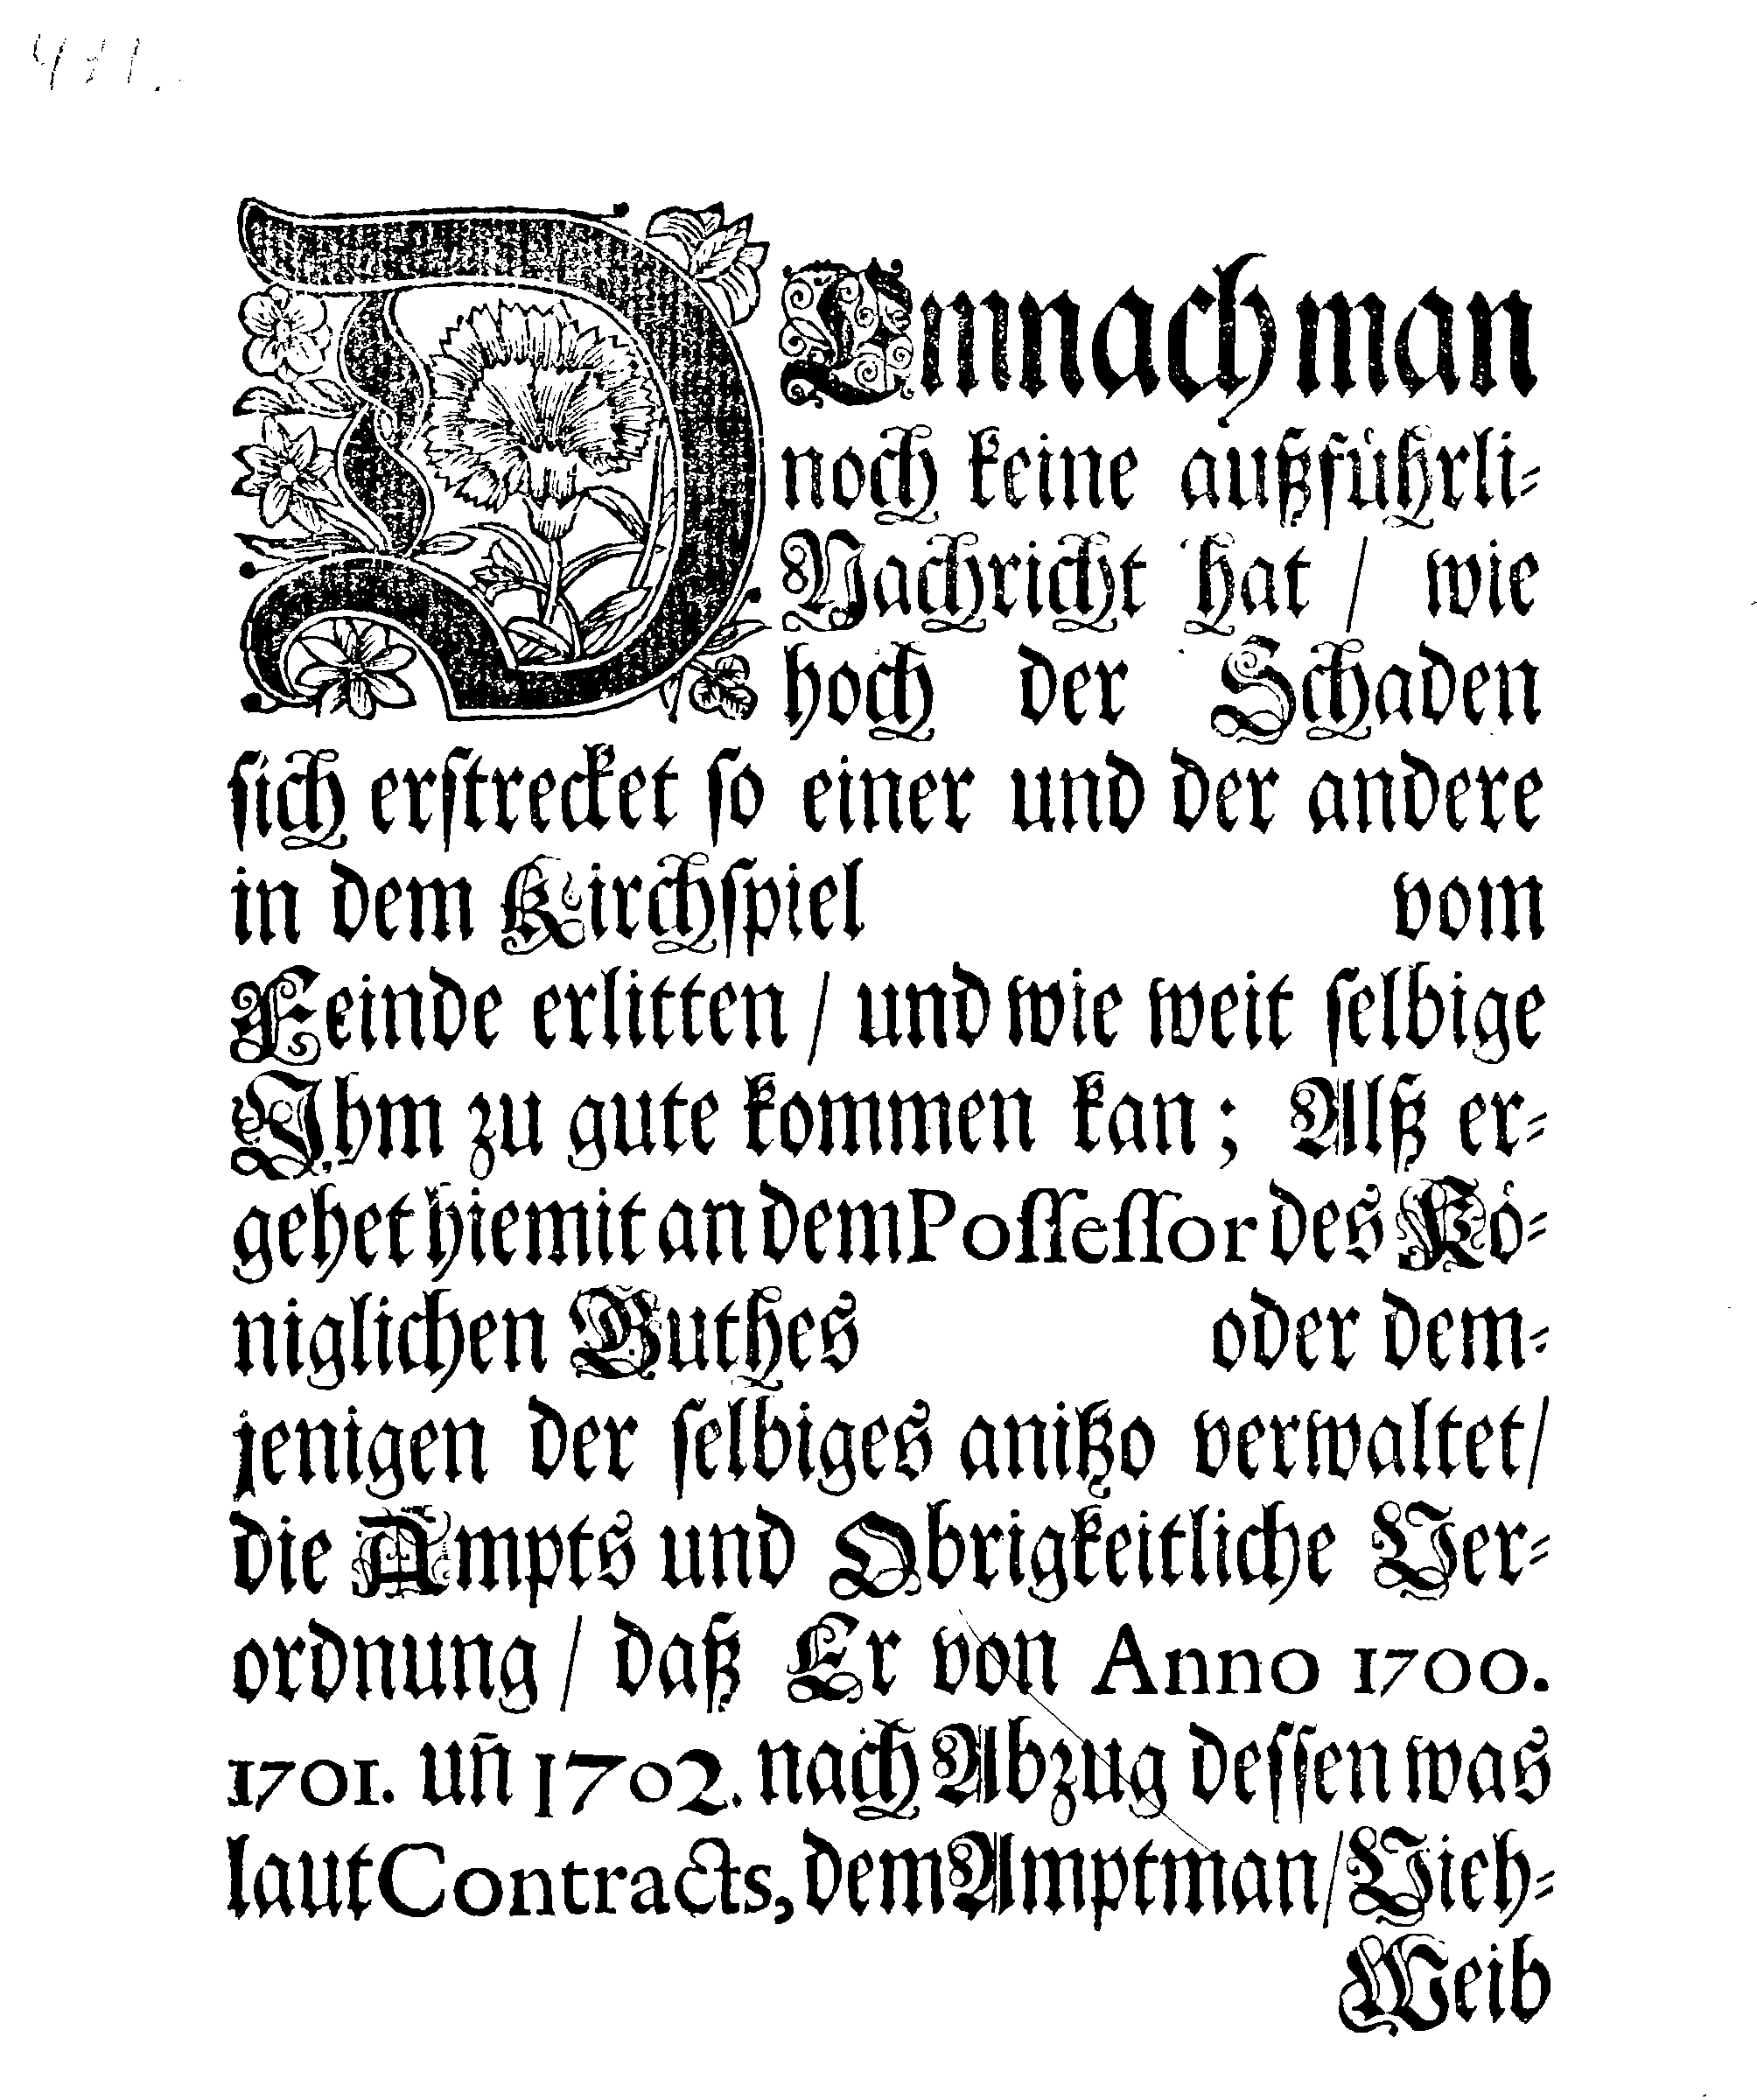 481.
DEmnach man
noch keine außführli-
Nachricht hat / wie
hoch der Schaden
sich erstrecket so einer und der andere
in dem Kirchspiel vom
Feinde erlitten / und wie weit selbige
Ihm zu gute kommen kan; Alß er-
gehet hiemit an dem Possessor des Kö-
niglichen Guthes oder dem-
jenigen der selbiges anitzo verwaltet/
die Ampts und Obrigkeitliche Ver-
ordnung / daß Er von Anno 1700.
1701. uñ 1702. nach Abzug dessen was
laut Contracts, dem Amptman/Vieh-
Weib